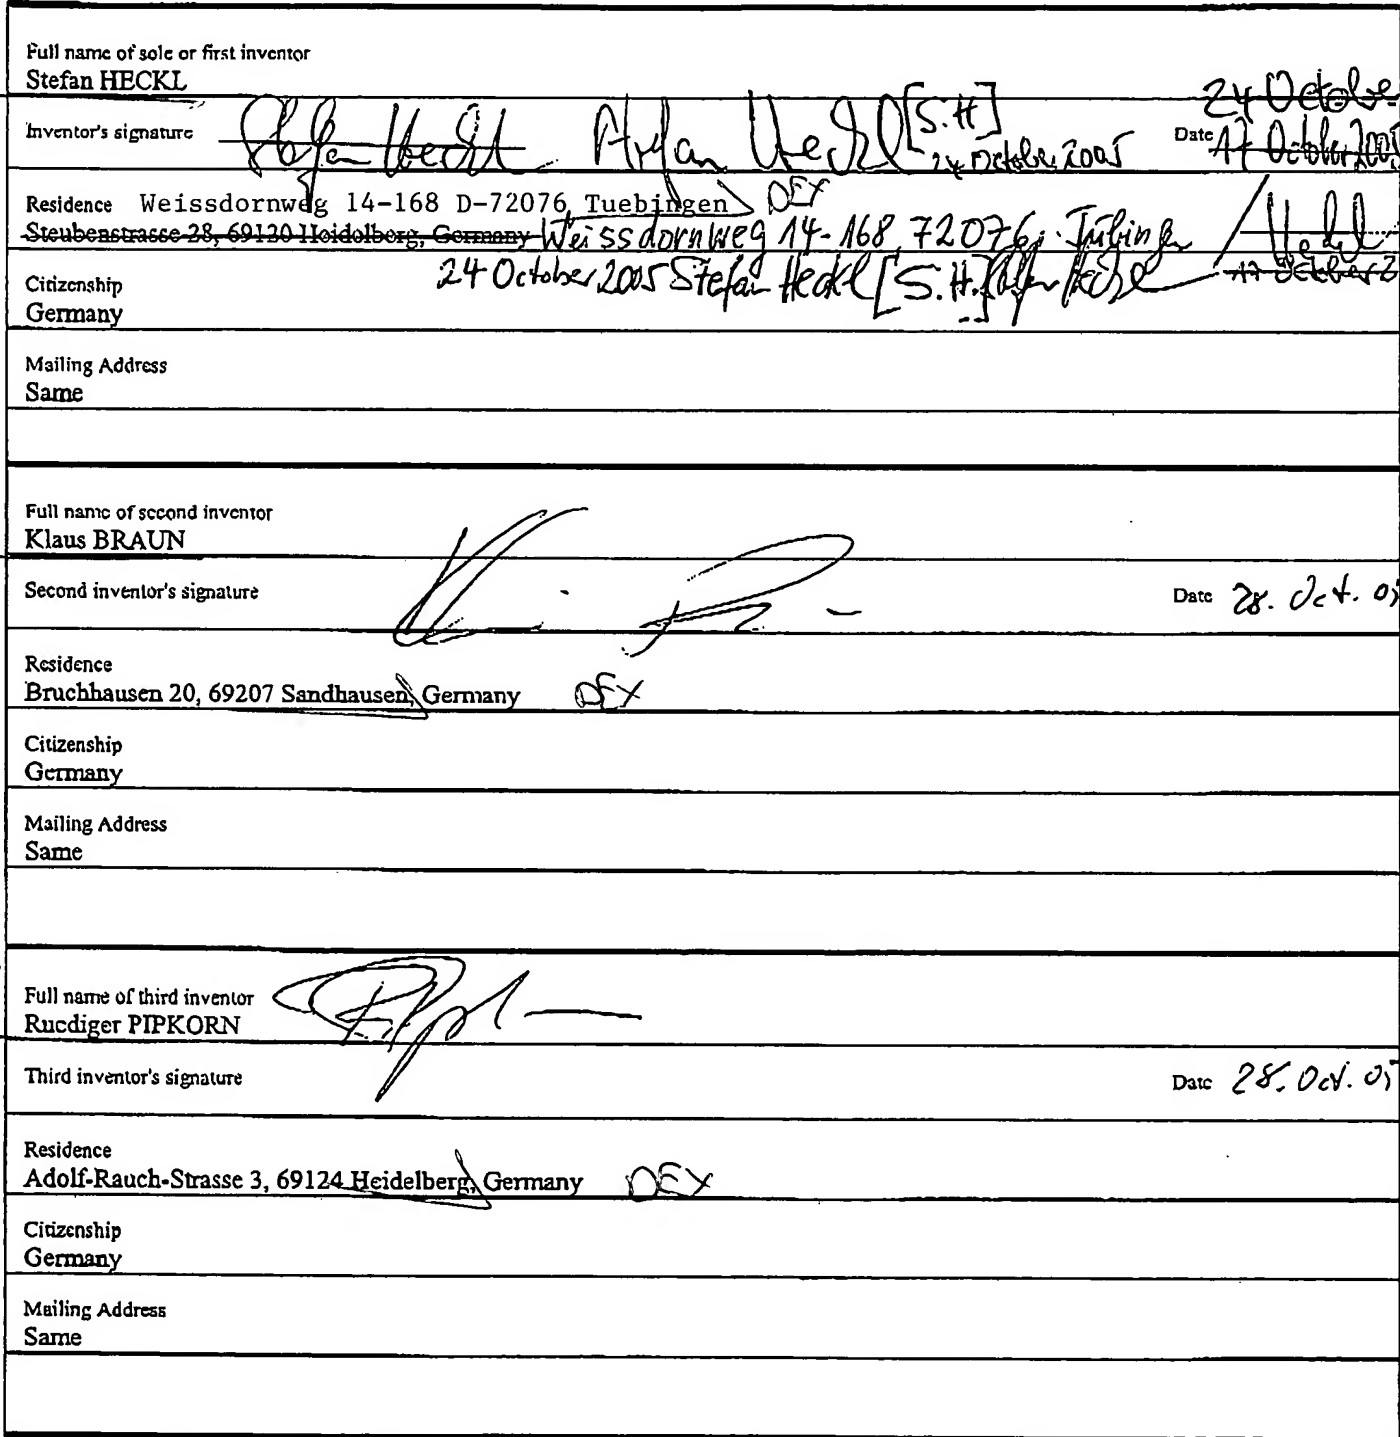 Full name of sole or first inventor
Stefan HECKL
Inventor's signature Stefan Heckl Stefan Heckl [S.H] 24 October 2005 Date 24 Octobe 17 October 2005
Residence Weissdornweg 14-168 D-72076 Tuebingen DEX
Steubenstrasse 28, 69120 Heidelberg, Germany Weissdornweg 14-168, 72076, Tübingen / Heckl
24 October 2005 Stefan Heckl [S.H.] Stefan Heckl 17 October 2
Citizenship
Germany
Mailing Address
Same
Full name of second inventor
Klaus BRAUN
Second inventor's signature Date 28. Oct. 05
Residence
Bruchhausen 20, 69207 Sandhausen, Germany DEX
Citizenship
Germany
Mailing Address
Same
Full name of third inventor
Ruediger PIPKORN
Third inventor's signature Date 28. Oct. 05
Residence
Adolf-Rauch-Strasse 3, 69124 Heidelberg, Germany DEX
Citizenship
Germany
Mailing Address
Same